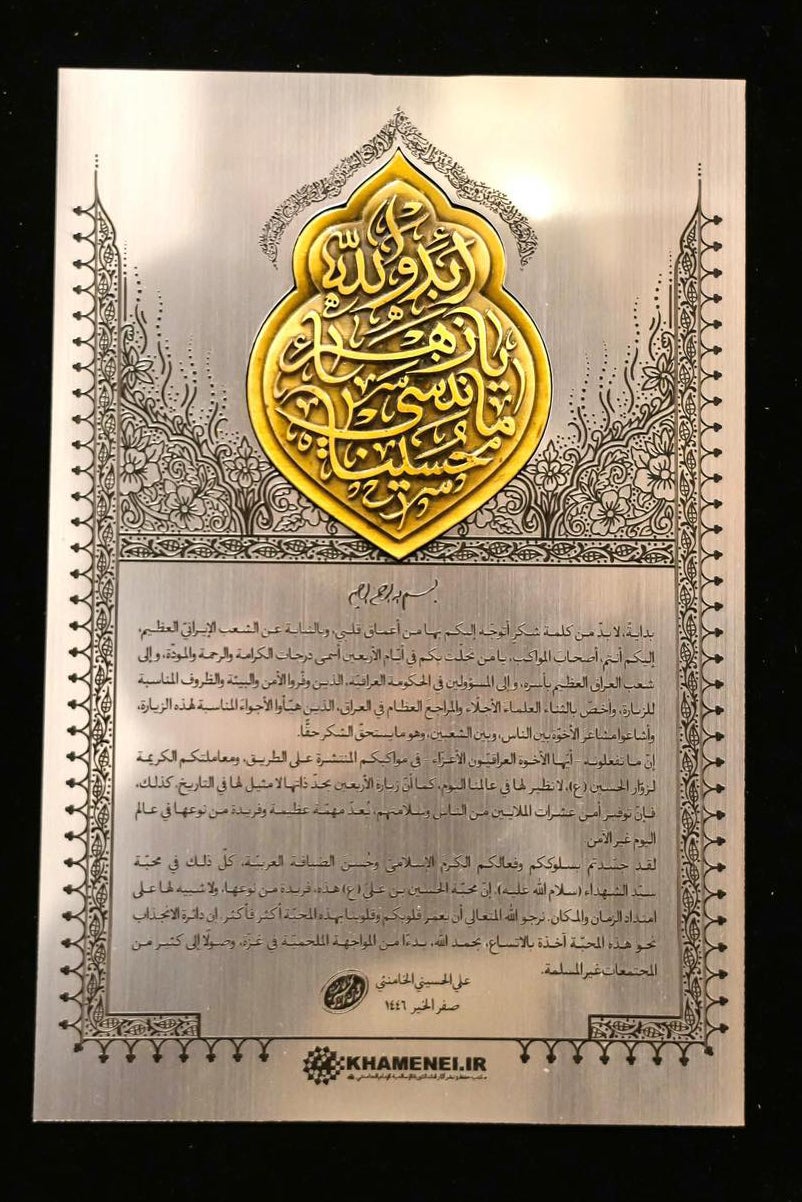 أبَدْ وَاللّٰه
يا زهراء
ما ننسى
حُسَيناه
بسم الله الرحمن الرحيم
بدايةً، لابدّ من كلمة شكرٍ أتوجّه إليكم بها من أعماق قلبي، وبالنيابة عن الشعب الإيرانيّ العظيم،
إليكم أنتم، أصحاب المواكب، يا من تجلّت بكم في أيّام الأربعين أسمى درجات الكرامة والرحمة والمودّة، وإلى
شعب العراق العظيم بأسره، وإلى المسؤولين في الحكومة العراقيّة، الذين وفّروا الأمن والبيئة والظروف المناسبة
للزيارة، وأخصّ بالثناء العلماء الأجلّاء والمراجع العظام في العراق، الذين هيّأوا الأجواء المناسبة لهذه الزيارة،
وأشاعوا مشاعر الأخوّة بين الناس، وبين الشعبين، وهو ما يستحقّ الشكر حقًّا.
إنّ ما تفعلونه - أيّها الأخوة العراقيّون الأعزّاء - في مواكبكم المنتشرة على الطريق، ومعاملتكم الكريمة
لزوّار الحسين (ع)، لا نظير لها في عالمنا اليوم، كما أنّ زيارة الأربعين بحدّ ذاتها لا مثيل لها في التاريخ. كذلك،
فإنّ توفير أمن عشرات الملايين من الناس وسلامتهم، يُعدّ مهمّة عظيمة وفريدة من نوعها في عالم
اليوم غير الآمن
لقد جسّدتم بسلوككم وفعالكم الكرم الإسلاميّ وحُسن الضيافة العربيّة، كلّ ذلك في محبّة
سيّد الشهداء (سلام الله عليه). إنّ محبّة الحسين بن عليّ (ع) هذه، فريدة من نوعها، ولا شبيه لها على
امتداد الزمان والمكان. نرجو الله المتعالي أن يعمر قلوبكم وقلوبنا بهذه المحبّة أكثر فأكثر. إن دائرة الانجذاب
نحو هذه المحبّة آخذة بالاتساع، بحمد الله، بدءًا من المواجهة الملحميّة في غزّة، وصولًا إلى كثير من
المجتمعات غير المسلمة.
علي الحسيني الخامنئي
صفر الخير ١٤٤٦
KHAMENEI.IR